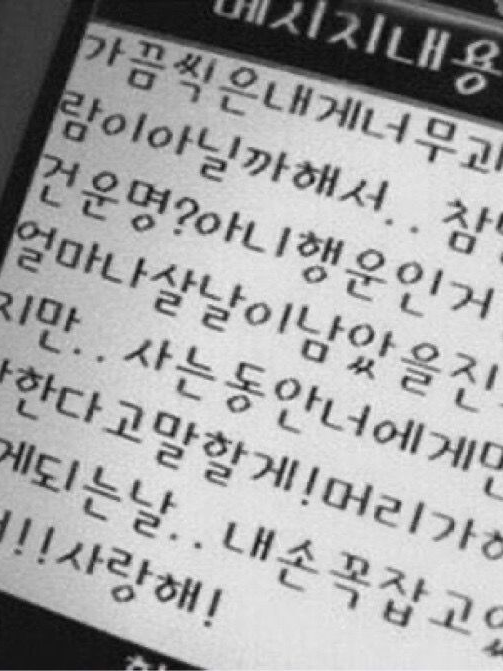 메시지내용
가끔씩은내게너무과
람이아닐까해서.. 참
건운명?아니행운인거
얼마나살날이남았을진
지만.. 사는동안너에게만
한다고말할게!머리가하
게되는날.. 내손꼭잡고있
!!사랑해!